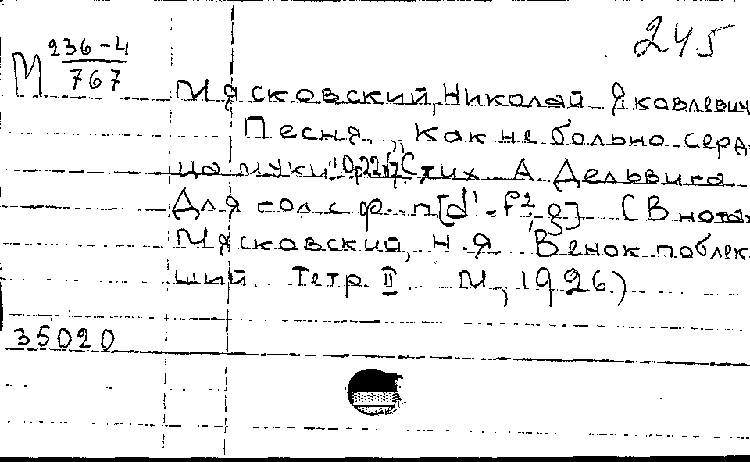 245
М 236-4/767
Мясковский, Николай Яковлевич
Песня „Как не больно серд-
ца муки" Op. 22 №7 Стих А. Дельвига
Для гол. с ф.-п. [d¹-f²; g] (В нотах
Мясковский, Н. Я. Венок поблек-
ший. Тетр. II. М., 1926.)
35020